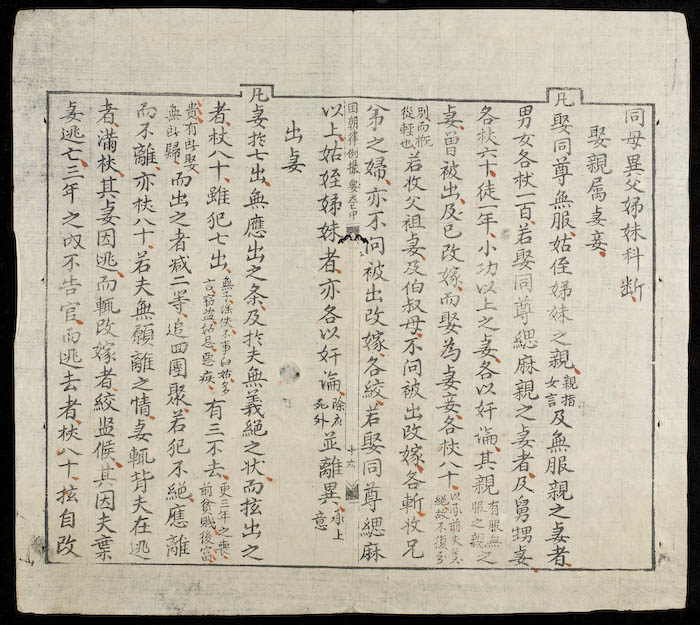 同母異父姊妹科断
娶親属妻妾
凡娶同尊無服姑侄姊妹之親親指女言及無服親之妻者
男女各杖一百若娶同尊緦麻親之妻者及舅甥妻
各杖六十徒一年小功以上之妻各以奸論其親有服無服之親之
妻曾被出及已改嫁而娶為妻妾各杖八十以前夫義絕故不復
別而概從輕也若收父祖妾及伯叔母不问被出改嫁各斬收兄
弟之婦亦不问被出改嫁各絞若娶同尊緦麻
國朝律例撮要卷之中
十六
以上姑姪姊妹者亦各以奸論除應死外並離異承上意
出妻
凡妻於七出無應出之条及於夫無義絕之状而擅出之
者杖八十雖犯七出無子淫佚不事舅姑多言窃盗妬忌惡疾有三不去更三年之喪前貧賤後富
貴有所娶無所歸而出之者减二等追回團聚若犯不絕應離
而不離亦杖八十若夫無願離之情妻輒背夫在逃
者滿杖其妻因逃而輒改嫁者絞监候其因夫棄
妻逃亡三年之内不告官而逃去者杖八十擅自改